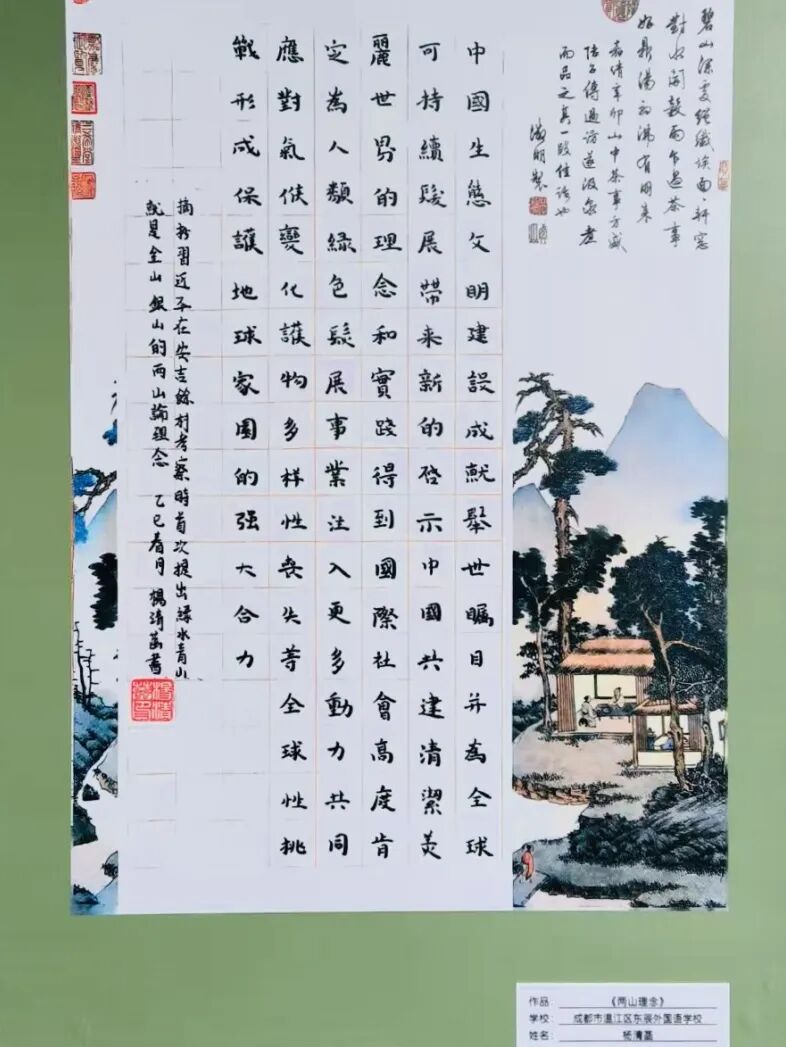 碧山深處絕纖埃面〻軒窗
對水開穀雨乍過茶事
好鼎湯初沸有朋來
嘉靖辛卯山中茶事方盛
陸子傳過訪遂汲泉煮
而品之真一段佳話也
徵明製
中國生態文明建設成就舉世矚目并為全球
可持續髮展帶来新的啓示中國共建清潔美
麗世界的理念和實踐得到國際社會高度肯
定為人類緑色髮展事業注入更多動力共同
應對氣候變化護物多样性丧失等全球性挑
戰形成保護地球家園的强大合力
摘抄習近平在安吉餘村考察時首次提出緑水青山
就是金山銀山的两山論理念 乙巳春月 楊清菡書
作品: 《两山理念》
学校: 成都市温江区东辰外国语学校
姓名: 杨清菡